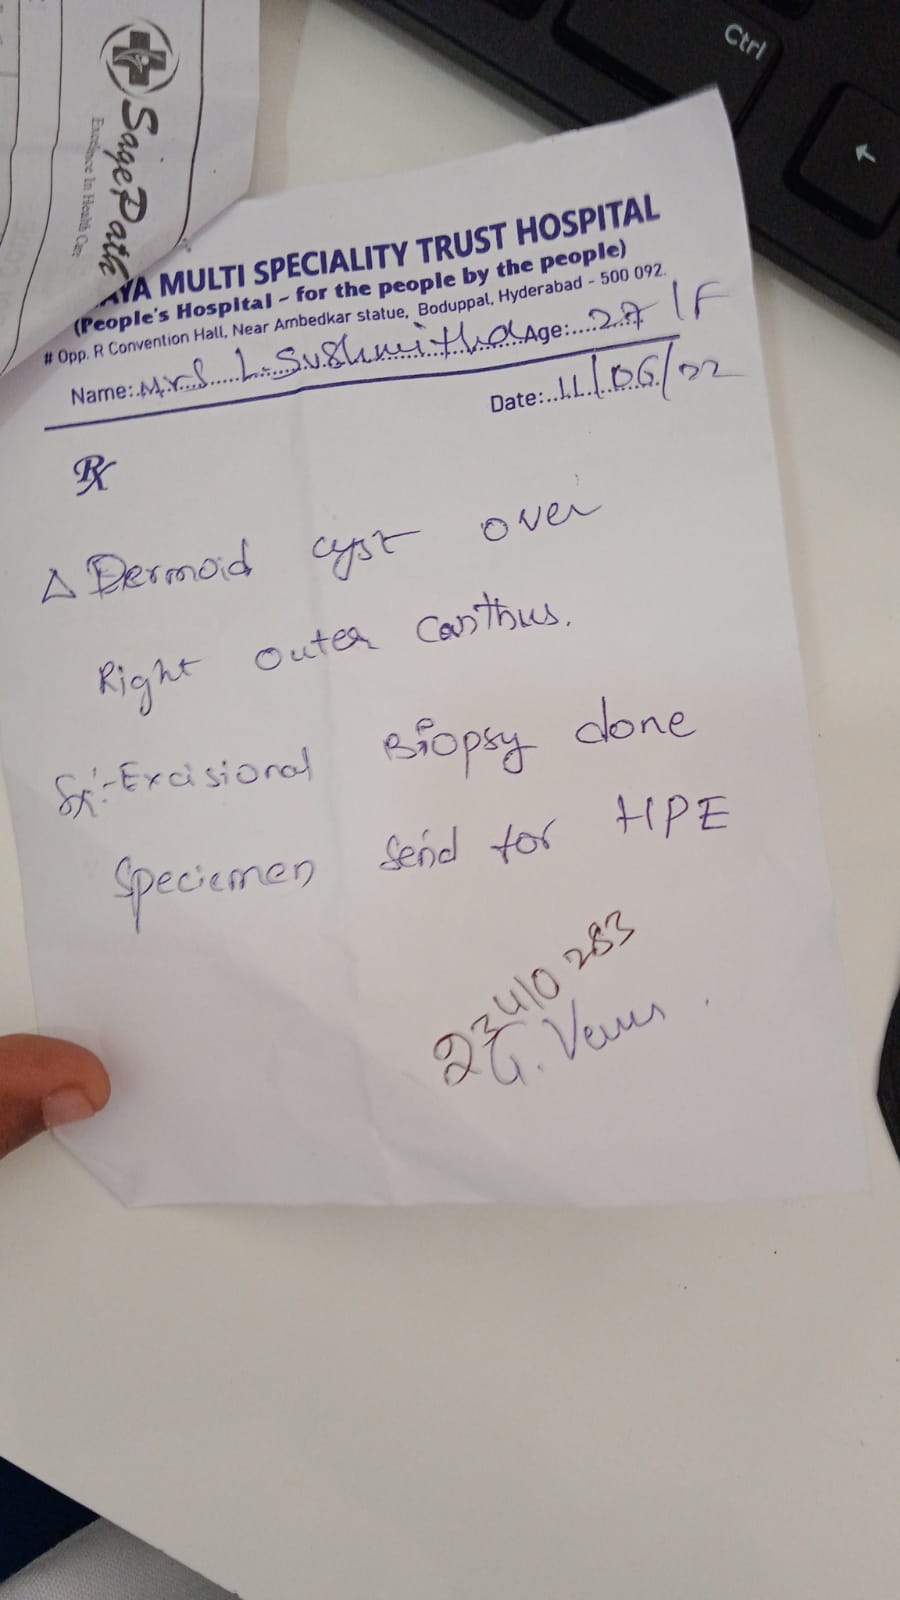 Ctrl
SagePath
Excellence In Health Care
AYA MULTI SPECIALITY TRUST HOSPITAL
(People's Hospital - for the people by the people)
# Opp. R Convention Hall, Near Ambedkar statue, Boduppal, Hyderabad - 500 092.
Name: Mrs L. Sushmitha Age: 27 / F
Date: 11/06/22
Rx
Δ Dermoid cyst over
Right outer canthus.
Sx:- Excisional Biopsy done
Speciemen send for HPE
23410283
G.